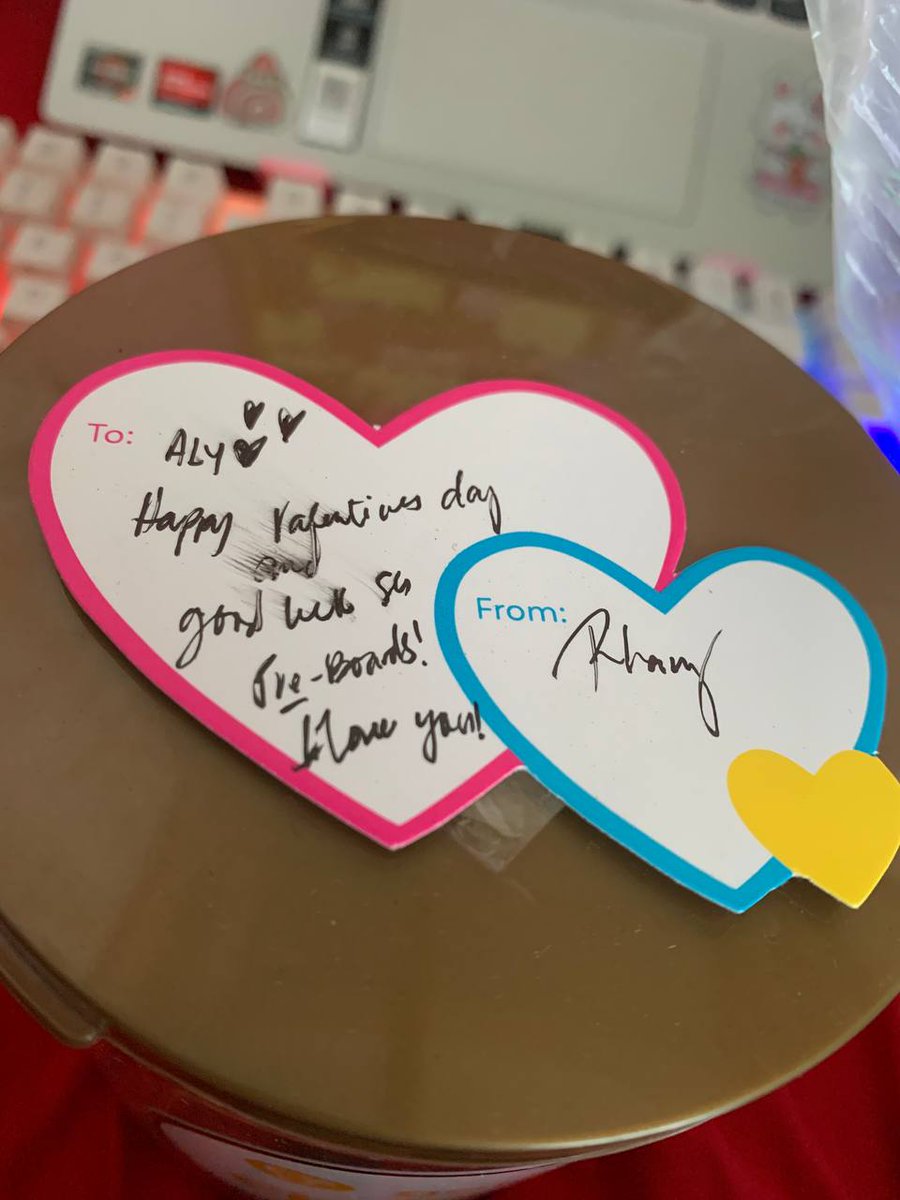 To: ALY
Happy Valentines day
and
good luck sa
Pre-Boards!
I love you!
From: Rhany